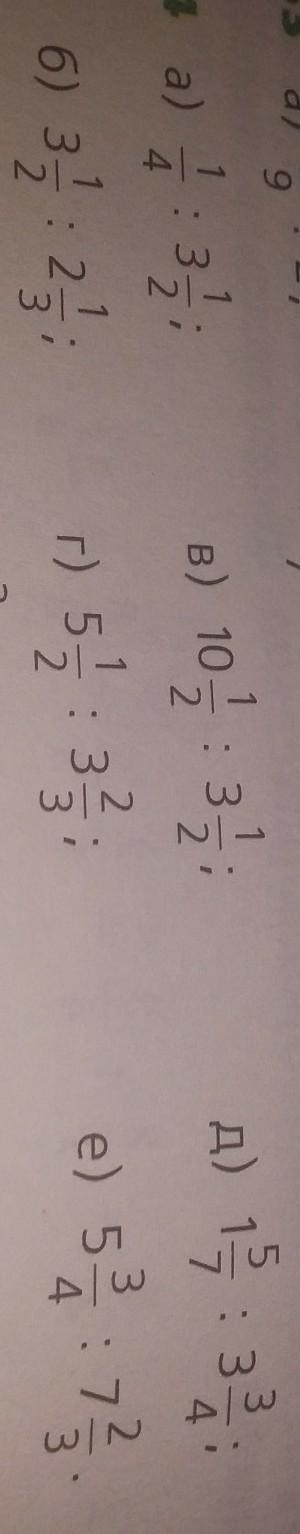 а) 1/4 : 3 1/2; в) 10 1/2 : 3 1/2; д) 1 5/7 : 3 3/4;
б) 3 1/2 : 2 1/3; г) 5 1/2 : 3 2/3; е) 5 3/4 : 7 2/3.